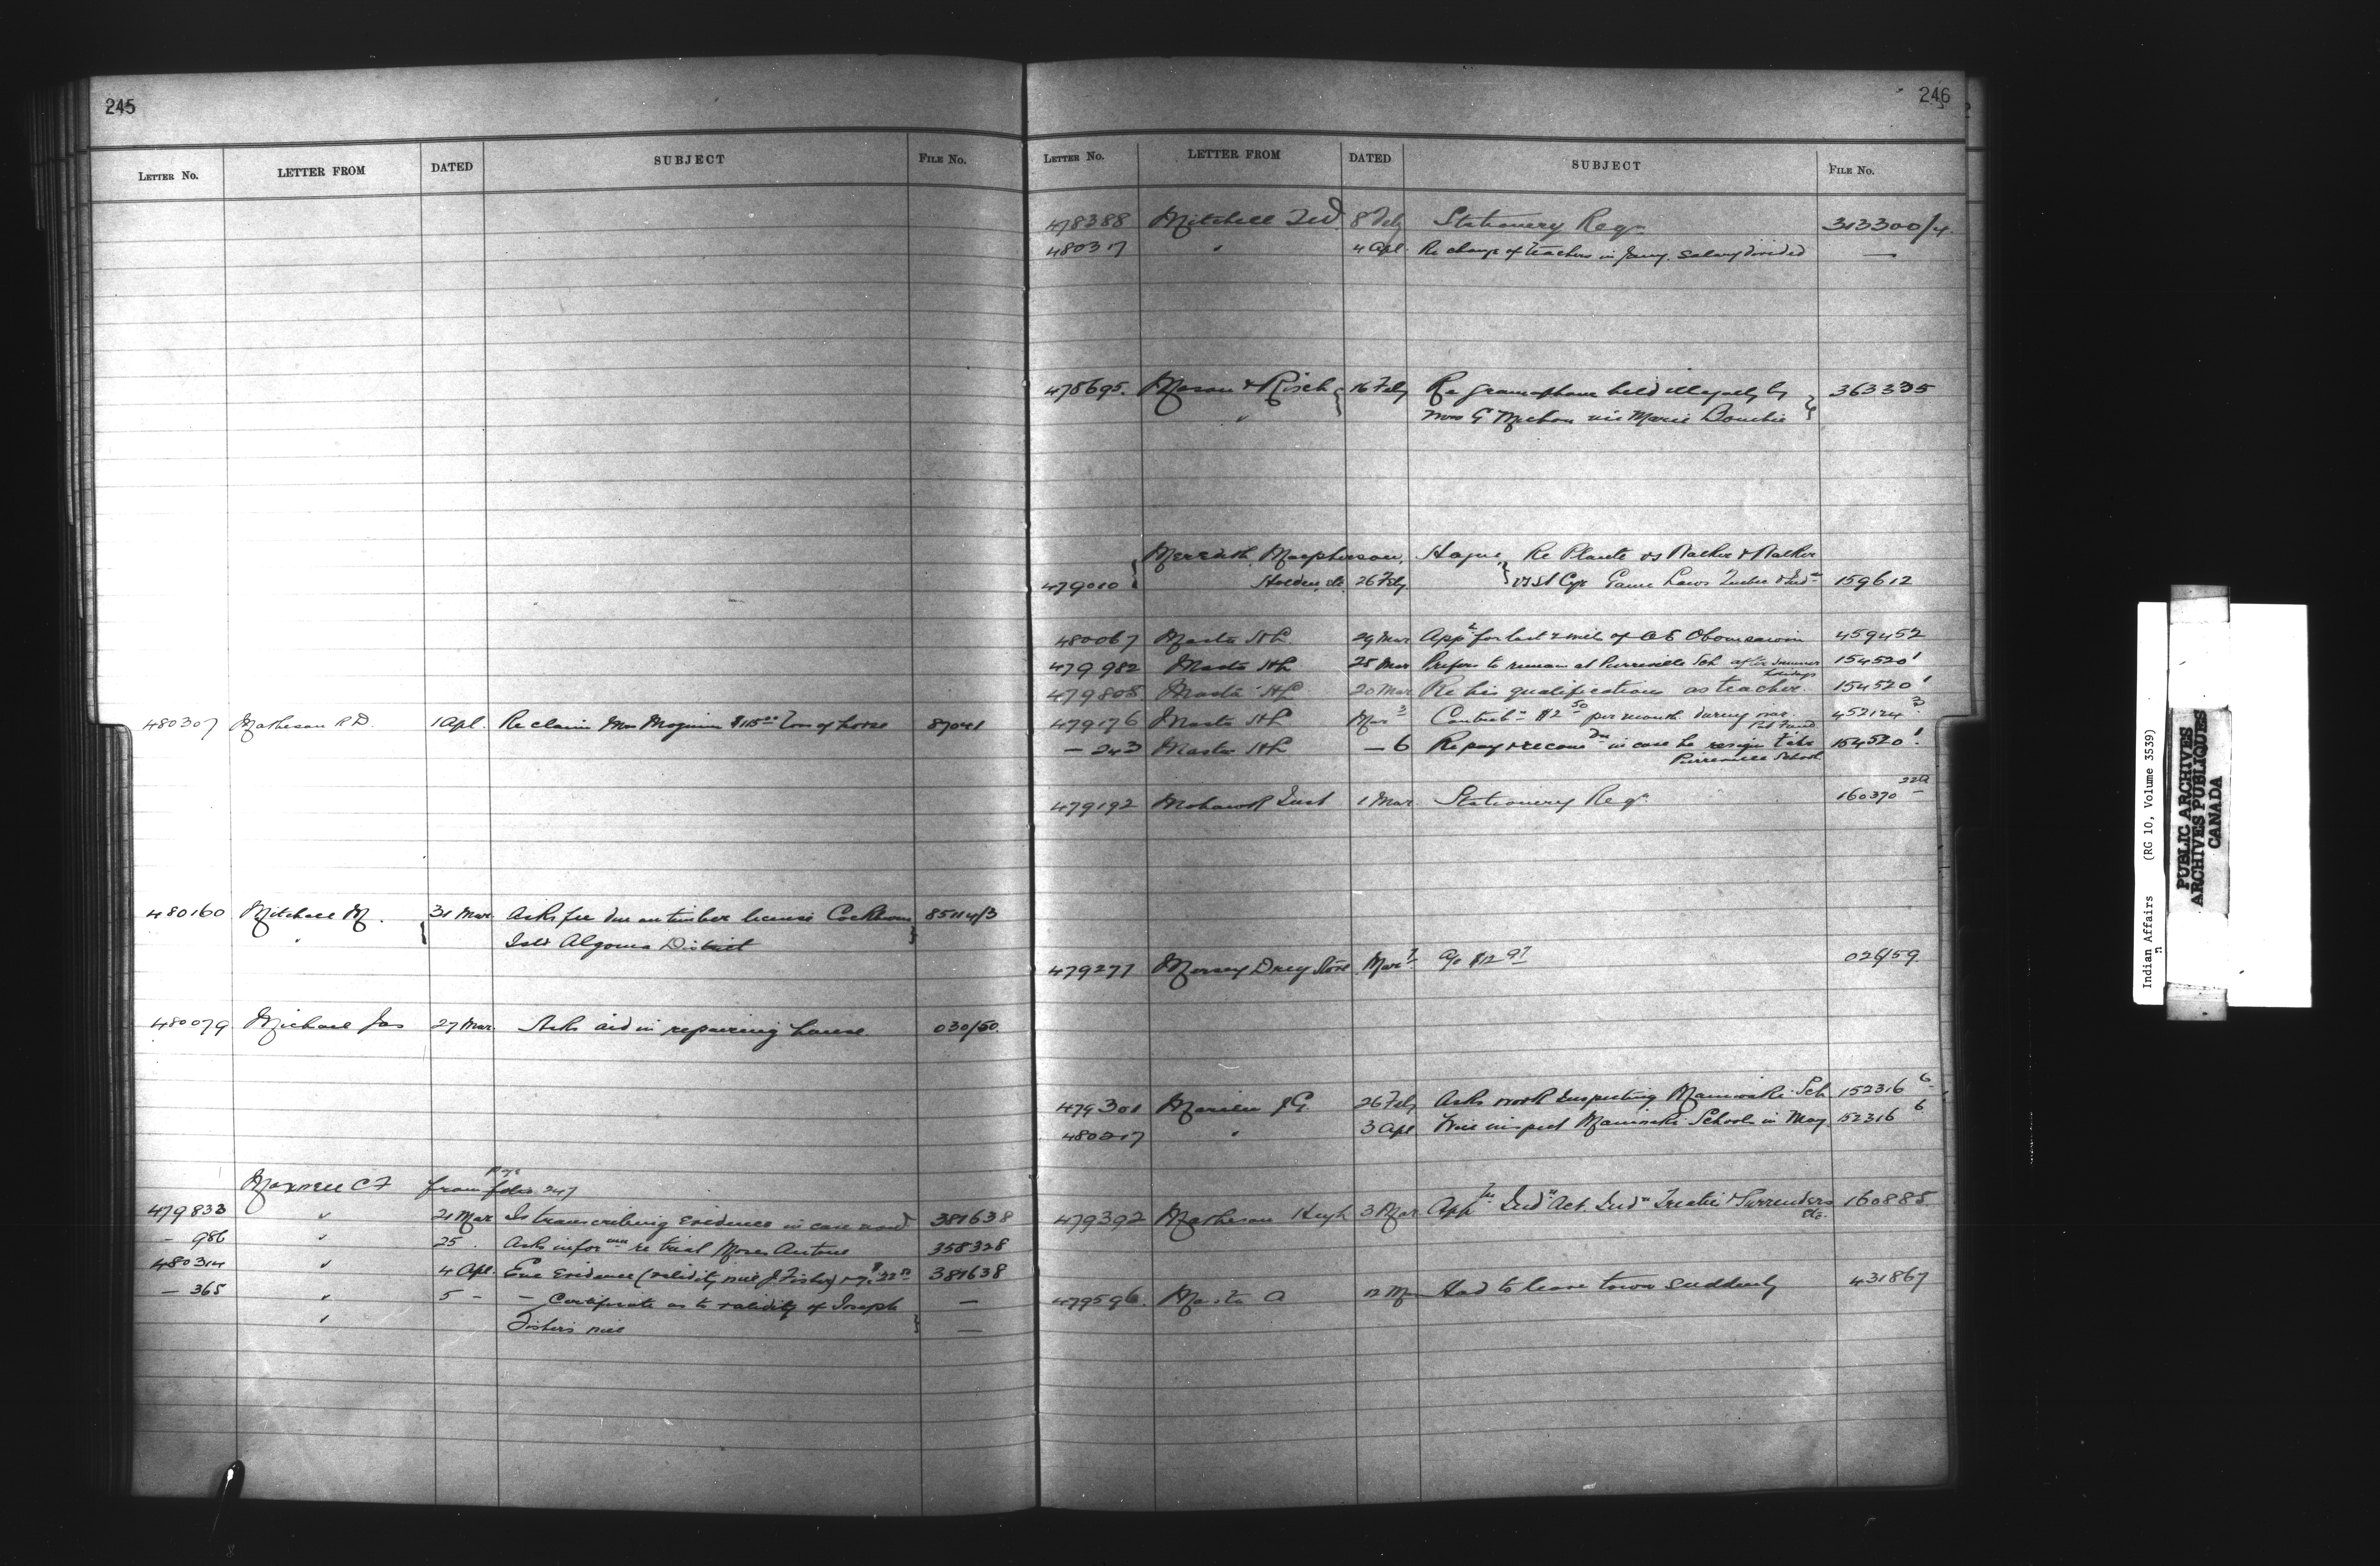 245
Letter No. LETTER FROM DATED SUBJECT File No.
480307 Matheson R D. 1 Apl. Re claim Mrs Moginn $115.00 loss of horse 87041
480160 Mitchell M. 31 Mar Asks fee due on timber license Cockburn 85114/3
Isld Algoma District
480079 Michael Jas 27 Mar. Asks aid in repairing house. 030/50
Maxwell C F from folio 247
page
479833 " 21 Mar Is transcribing evidence in case 381638
— 986 " 25. Asks infor re trial Moses Antone 358328
480314 " 4 Apl. Enc Evidence (validity will J. Fisher) 381638
— 365 " 5 - — Certificate as to validity of Joseph —
" Fishers will —
246
Letter No. LETTER FROM DATED SUBJECT File No.
478388 Mitchell 8 Feby Stationery Reqn 313300/4.
480317 " 4 Apl. Re change of teachers in Jany. Salary divided —
478695. Mason & Risch 16 Feby Re gramophone held illegally by 363335
" Mrs G Michon née Marie
Meredith, Macpherson, Hague, Re Plante vs Walker & Walker
479010 Holden, etc 26 Feby vs St Cyr Game Laws Quebec & Inds 159612
480067 Masta H L. 29 Mar Appn for last will of Obomsawin 459452
479982 Masta H L 25 Mar Prefers to remain at Pierreville Sch after summer 154520 1
holidays
479805 Masta H L 20 Mar Re his qualifications as teacher. 154520 1
479176 Masta H L Mar 3 Contribn $2.50 per month during war. 452124 3
Pat Fund
— 243 Masta H L — 6 Re pay in case he resign 154520 1
Pierreville School
479192 Mohawk Inst 1 Mar. Stationery Reqn. 160370 22A
479277 Morsey Drug Store Mar 7 a/c $12.97 026/59
479301 Marien J G. 26 Feby Asks work Inspecting Maniwaki Sch 152316 6
480217 " 3 Apl Will inspect Maniwaki Schools in May 152316 6
479392 Matheson Hugh 3 Mar. Appn Indn Act. Indn Treaties & Surrenders 160885
etc.
479596 Masta A 12 Mar Had to leave town suddenly 431867
Indian Affairs (RG 10, Volume 3539)
PUBLIC ARCHIVES
ARCHIVES PUBLIQUES
CANADA